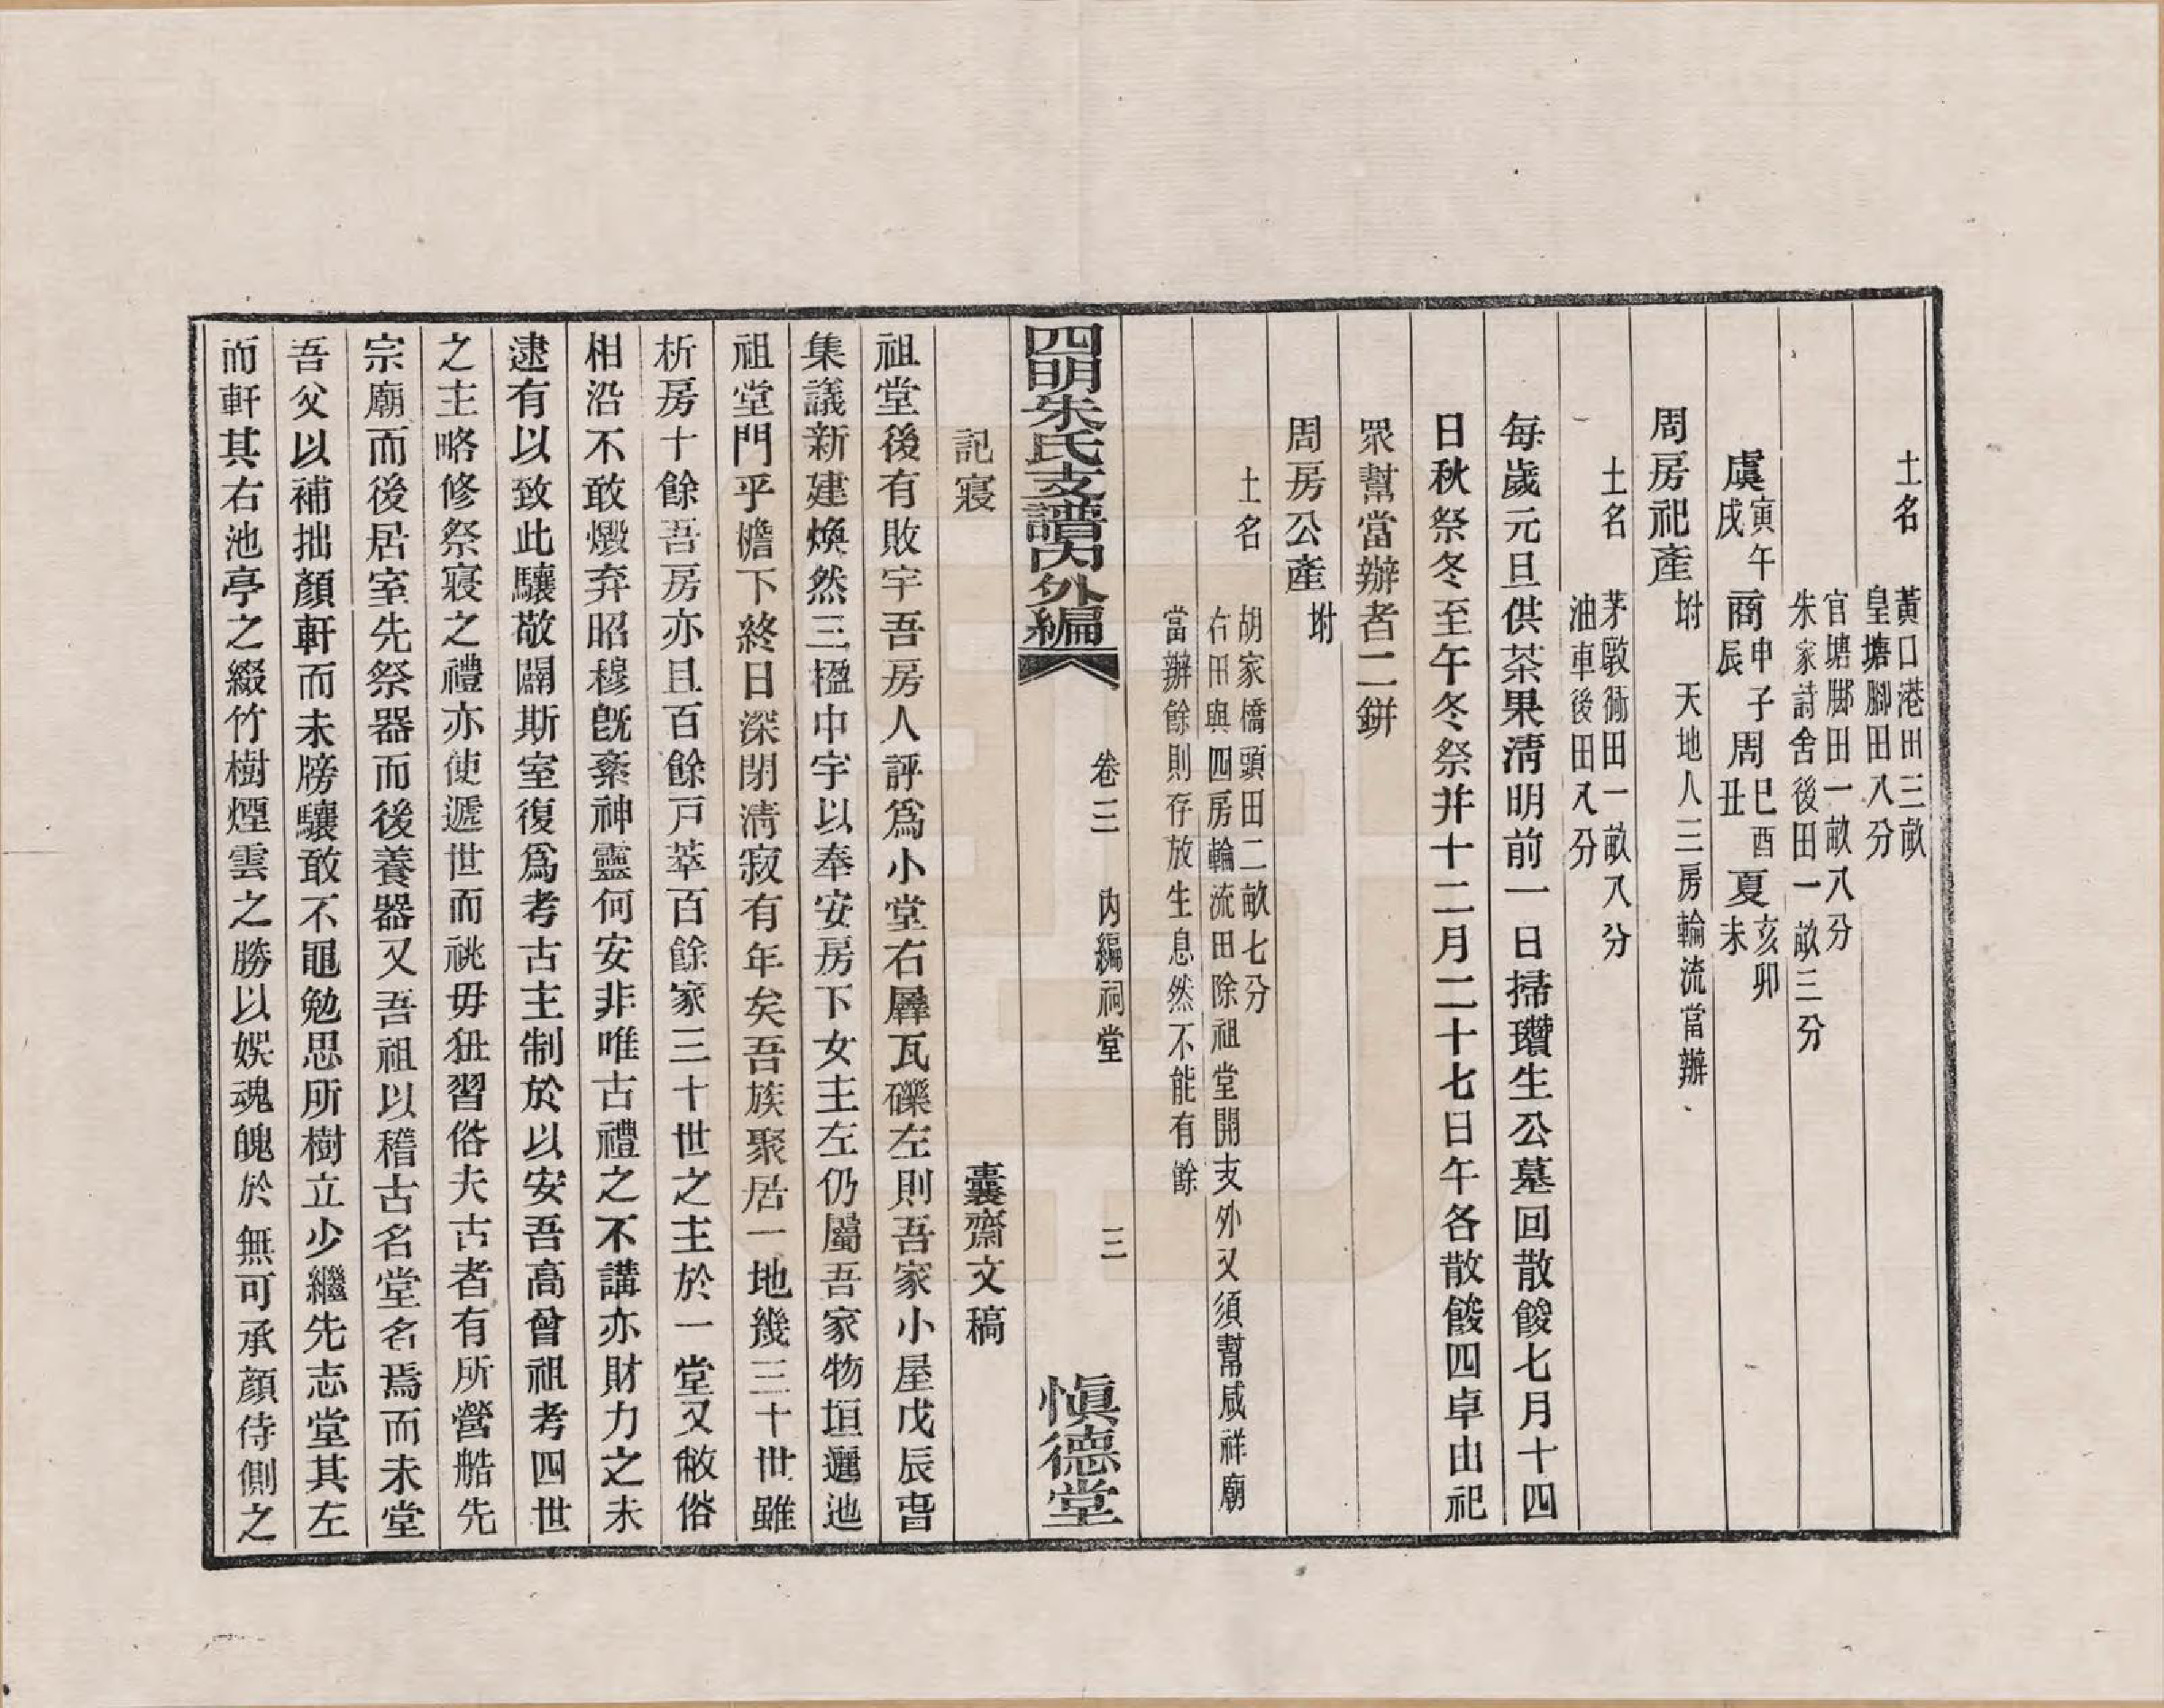 土名
黃口港田三畝
皇塘腳田八分
官塘腳田一畝八分
朱家詩舍後田一畝三分
虞寅午戌 商申子辰 周巳酉丑 夏亥卯未
周房祀產坿 天地人三房輪流當辦
土名
茅䃦衕田一畝八分
油車後田八分
每歲元旦供茶果淸明前一日掃瓚生公墓回散餕七月十四
日秋祭冬至午冬祭并十二月二十七日午各散餕四卓由祀
眾幫當辦者二餅
周房公產坿
土名
胡家橋頭田二畝七分
右田與四房輪流田除祖堂開支外又須幫咸祥廟
當辦餘則存放生息然不能有餘
四明朱氏支譜內外編 卷三 內編祠堂 三 愼德堂
記寢 嚢齋文稿
祖堂後有敗宇吾房人評爲小堂右㕓瓦礫左則吾家小屋戊辰旾
集議新建煥然三楹中宇以奉安房下女主左仍屬吾家物垣邐迆
祖堂門乎檐下終日深閉淸寂有年矣吾族聚居一地幾三十世雖
析房十餘吾房亦且百餘戸萃百餘家三十世之主於一堂又敝俗
相沿不敢燬弃昭穆旣紊神靈何安非唯古禮之不講亦財力之未
逮有以致此驤敬闢斯室復爲考古主制於以安吾高曾祖考四世
之主略修祭寢之禮亦使遞世而祧毋狃習俗夫古者有所營艁先
宗廟而後居室先祭器而後養器又吾祖以稽古名堂名焉而未堂
吾父以補拙顏軒而未牓驤敢不黽勉思所樹立少繼先志堂其左
而軒其右池亭之綴竹樹煙雲之勝以娛魂魄於無可承顏侍側之